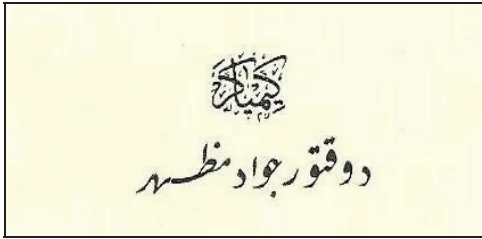 كيمياكر
دوقتور جواد مظهر